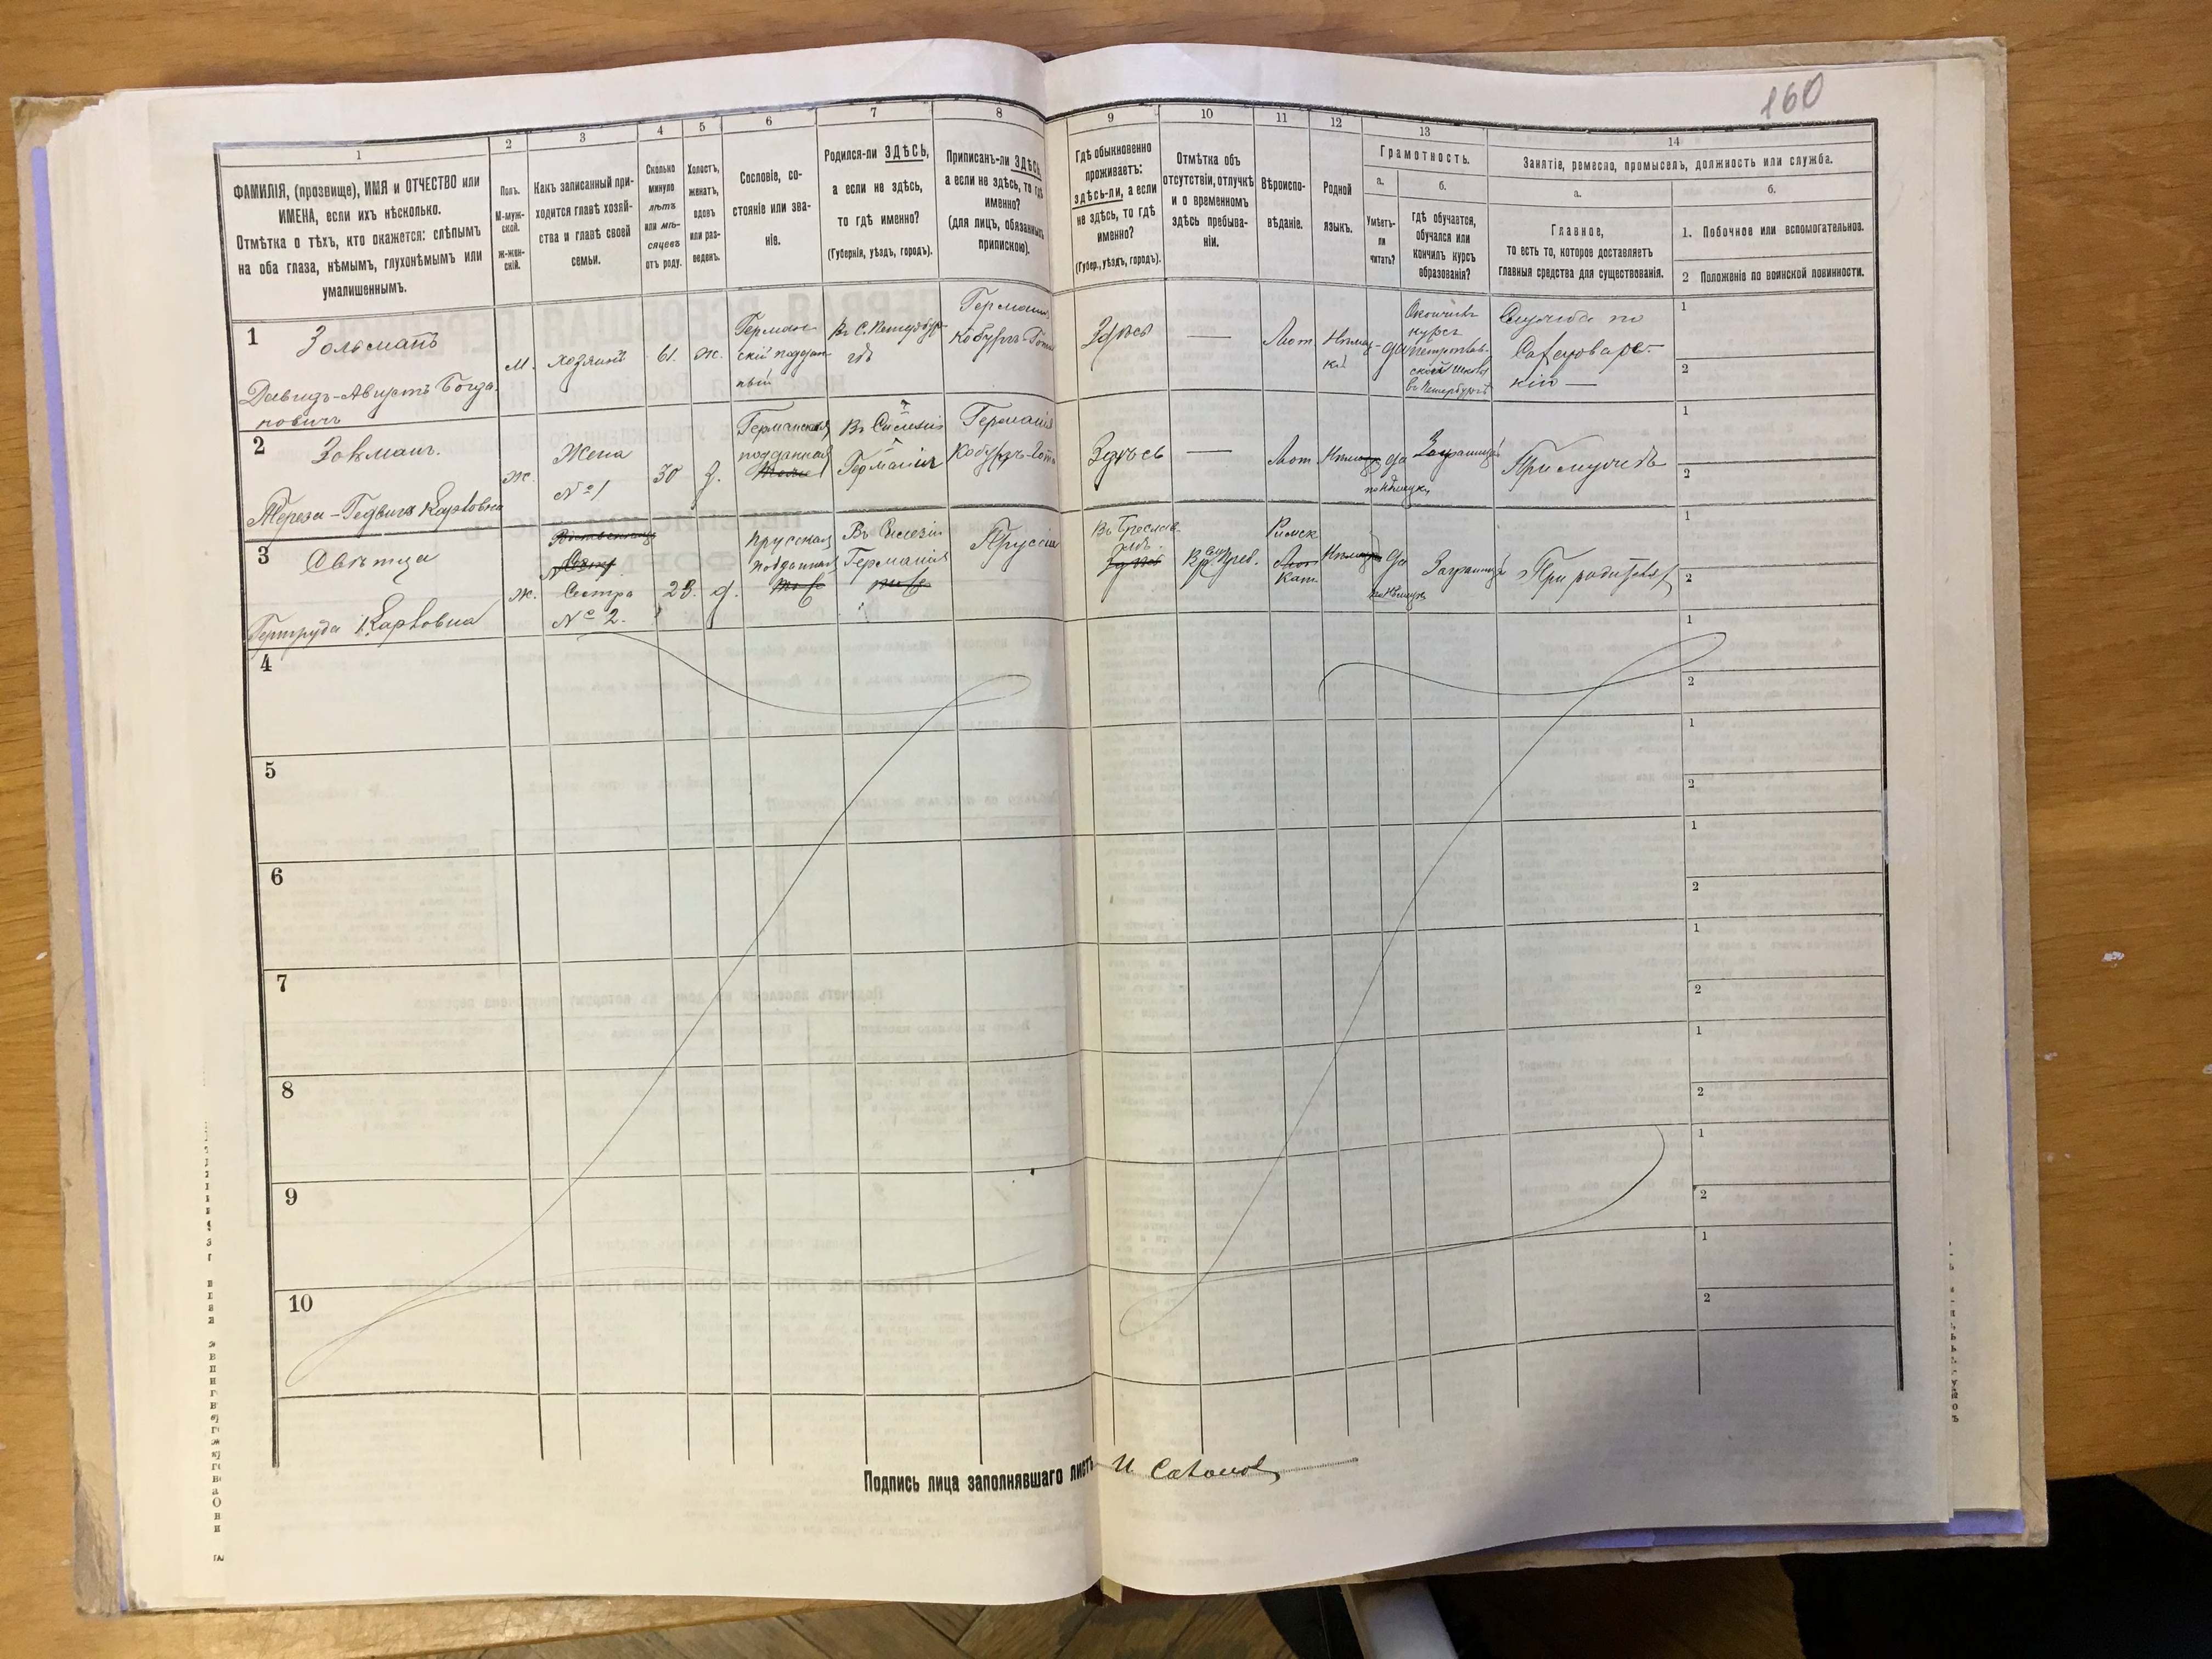 160
1
2
3
4
5
6
7
8
9
10
11
12
13
14
ФАМИЛІЯ, (прозвище), ИМЯ и ОТЧЕСТВО или
ИМЕНА, если ихъ нѣсколько.
Отмѣтка о тѣхъ, кто окажется: слѣпымъ
на оба глаза, нѣмымъ, глухонѣмымъ или
умалишеннымъ.
Полъ.
М-муж-
ской.
Ж-жен-
скій.
Какъ записанный при-
ходится главѣ хозяй-
ства и главѣ своей
семьи.
Сколько
минуло
лѣтъ
или мѣ-
сяцевъ
отъ роду.
Холостъ,
женатъ,
вдовъ
или раз-
веденъ.
Сословіе, со-
стояніе или зва-
ніе.
Родился-ли ЗДѢСЬ,
а если не здѣсь,
то гдѣ именно?
(Губернія, уѣздъ, городъ).
Приписанъ-ли ЗДѢСЬ,
а если не здѣсь, то гдѣ
именно?
(для лицъ, обязанныхъ
припискою).
Гдѣ обыкновенно
проживаетъ:
здѣсь-ли, а если
не здѣсь, то гдѣ
именно?
(Губер., уѣздъ, городъ).
Отмѣтка объ
отсутствіи, отлучкѣ
и о временномъ
здѣсь пребыва-
ніи.
Вѣроиспо-
вѣданіе.
Родной
языкъ.
Грамотность.
а.
Умѣетъ-
ли
читать?
б.
гдѣ обучается,
обучался или
кончилъ курсъ
образованія?
Занятіе, ремесло, промыселъ, должность или служба.
а.
Главное,
то есть то, которое доставляетъ
главныя средства для существованія.
б.
1. Побочное или вспомогательное.
2 Положеніе по воинской повинности.
1
Давидъ-Августъ Богда-
новичъ
м.
хозяинъ
61.
ж.
Герман-
скій поддан-
ный
Въ С. Петербур-
гѣ
Германія
Кобургъ-Гота
Здѣсь
—
Лют
Нѣмец-
кій
да
Окончилъ
курсъ
въ Петербургѣ
Служба по
1
2
2
Тереза-Гедвига Карловна
ж.
Жена
№ 1
30
з.
Германская
подданная
Въ Силезіи
Германіи
Германія
Кобургъ-Гота
Здѣсь
—
Лют
да
по нѣмецк.
Заграницей
При мужѣ
1
2
3
Гертруда Карловна
ж.
Сестра
№ 2.
23.
д.
Прусская
подданная
Въ Силезіи
Германія
Пруссія
Римск
Кат.
да
по нѣмецк
Заграницей
При родителях
1
2
4
1
2
5
1
2
6
1
2
7
1
2
8
1
2
9
1
2
10
1
2
Подпись лица заполнявшаго листъ